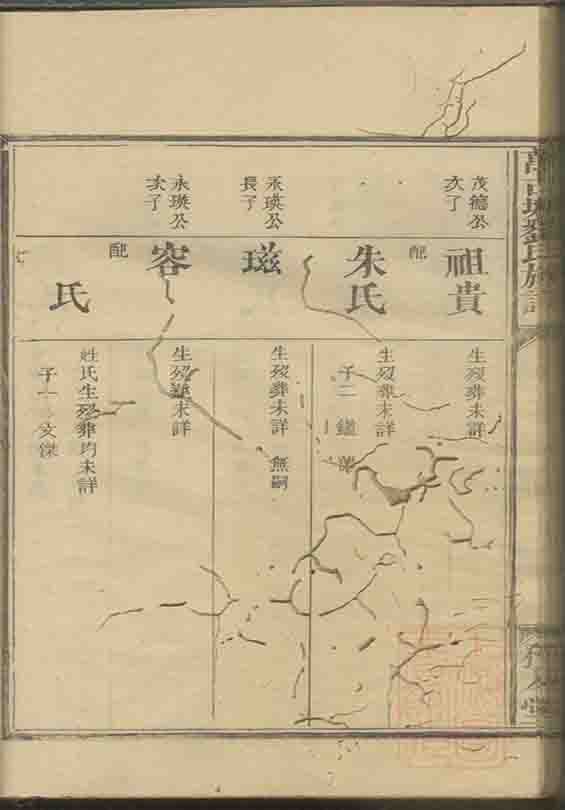 劉氏族譜
茂德公
次子
祖貴
生歿葬未詳
配
朱氏
生歿葬未詳
子二
永瑛公
長子
生歿葬未詳 無嗣
永瑛公
次子
容
生歿葬未詳
配
氏
姓氏生歿葬均未詳
子一 文傑